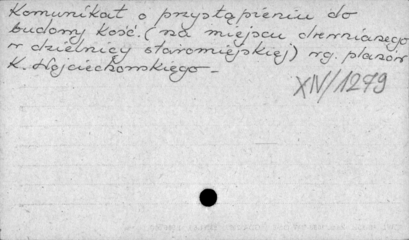 Komunikat o przystąpieniu do
budowy kość. (na miejscu drewnianego
w dzielnicy staromiejskiej) wg. planów
K. Wojciechowskiego –
XIV/1279